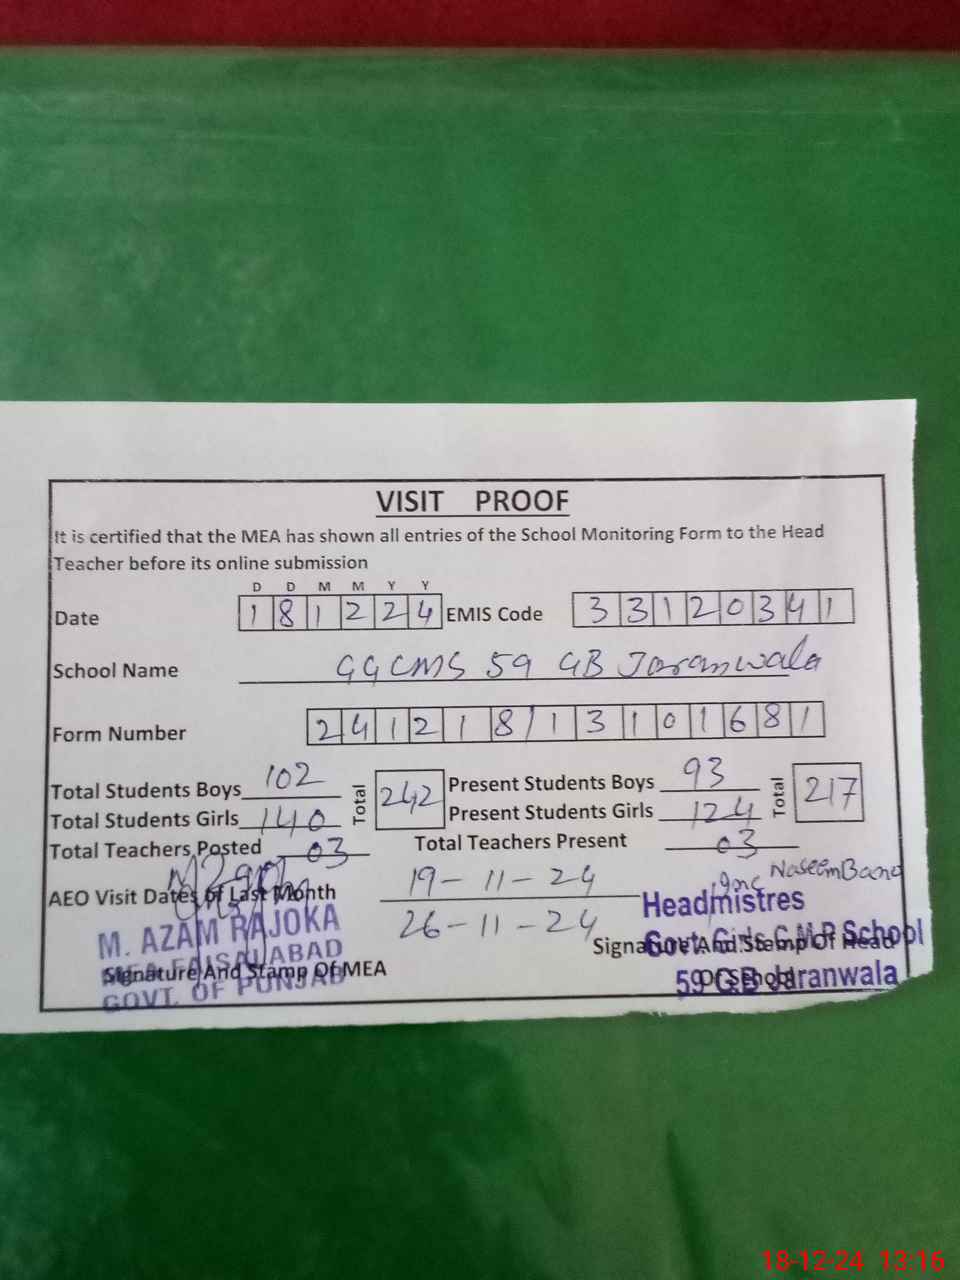 VISIT PROOF
It is certified that the MEA has shown all entries of the School Monitoring Form to the Head
Teacher before its online submission
D D M M Y Y
Date 1 8 1 2 2 4 EMIS Code 3 3 1 2 0 3 4 1
School Name GGCMS 59 GB Jaranwala
Form Number 2 4 1 2 1 8 1 3 1 0 1 6 8 1
Total Students Boys 102 Total 242 Present Students Boys 93 Total 217
Total Students Girls 140 Present Students Girls 124
Total Teachers Posted 03 Total Teachers Present 03
AEO Visit Dates of Last Month 19-11-24
26-11-24
Naseem Bano
Headmistres
Govt. Girls C.M.P School
59 G.B Jaranwala
Signature And Stamp Of Head
Of School
M. AZAM RAJOKA
MEA FAISALABAD
GOVT. OF PUNJAB
Signature And Stamp Of MEA
18-12-24 13:16